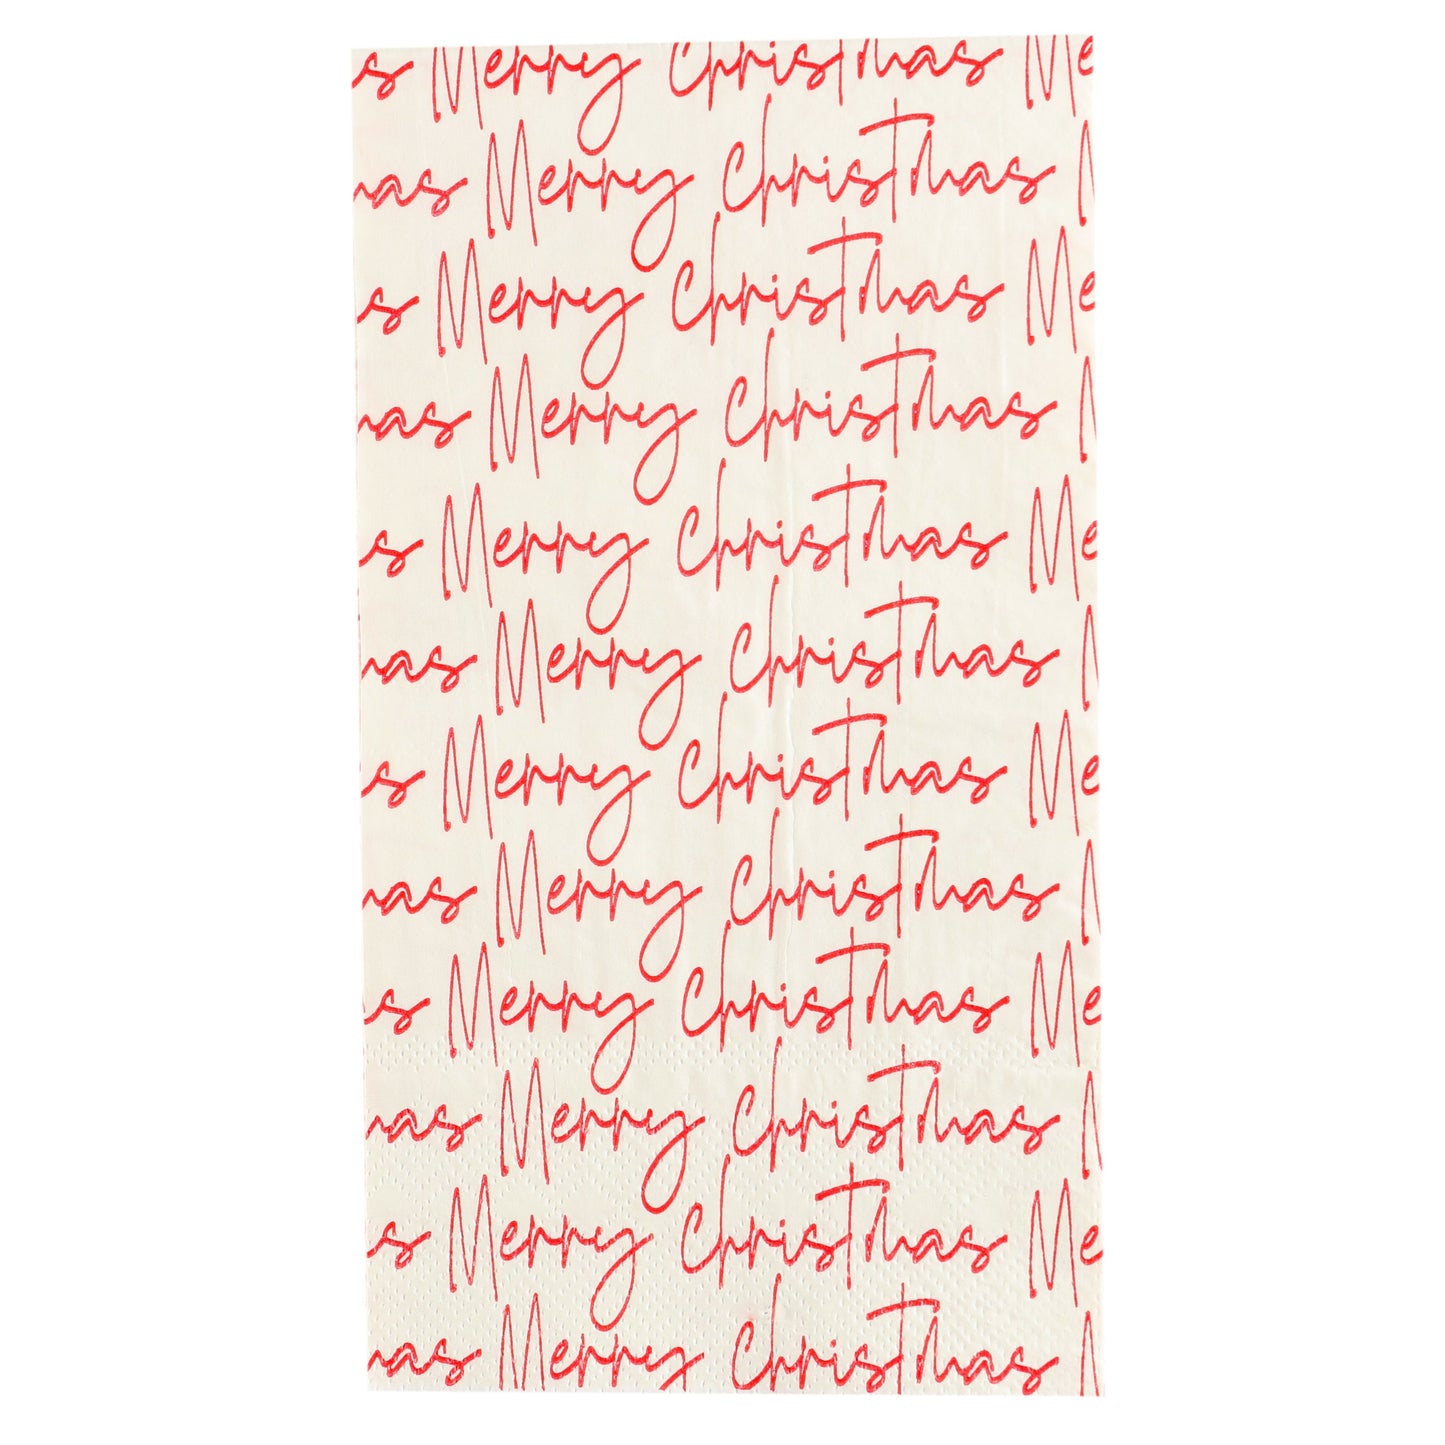 as Merry Christmas Me
mas Merry Christmas M
as Merry Christmas Me
mas Merry Christmas M
as Merry Christmas Me
mas Merry Christmas M
as Merry Christmas Me
mas Merry Christmas M
as Merry Christmas Me
mas Merry Christmas M
as Merry Christmas Me
mas Merry Christmas M